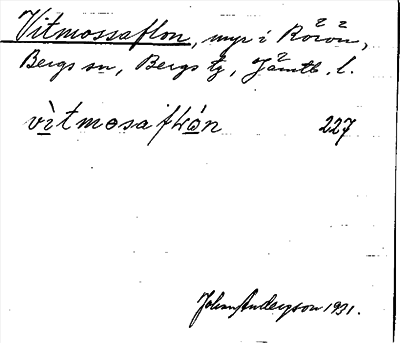 Vitmossaflon, myr i Rörön,
Bergs sn, Bergs tg, Jämtl. l.
vìtmosaflón 227
Johan Anderson 1931.